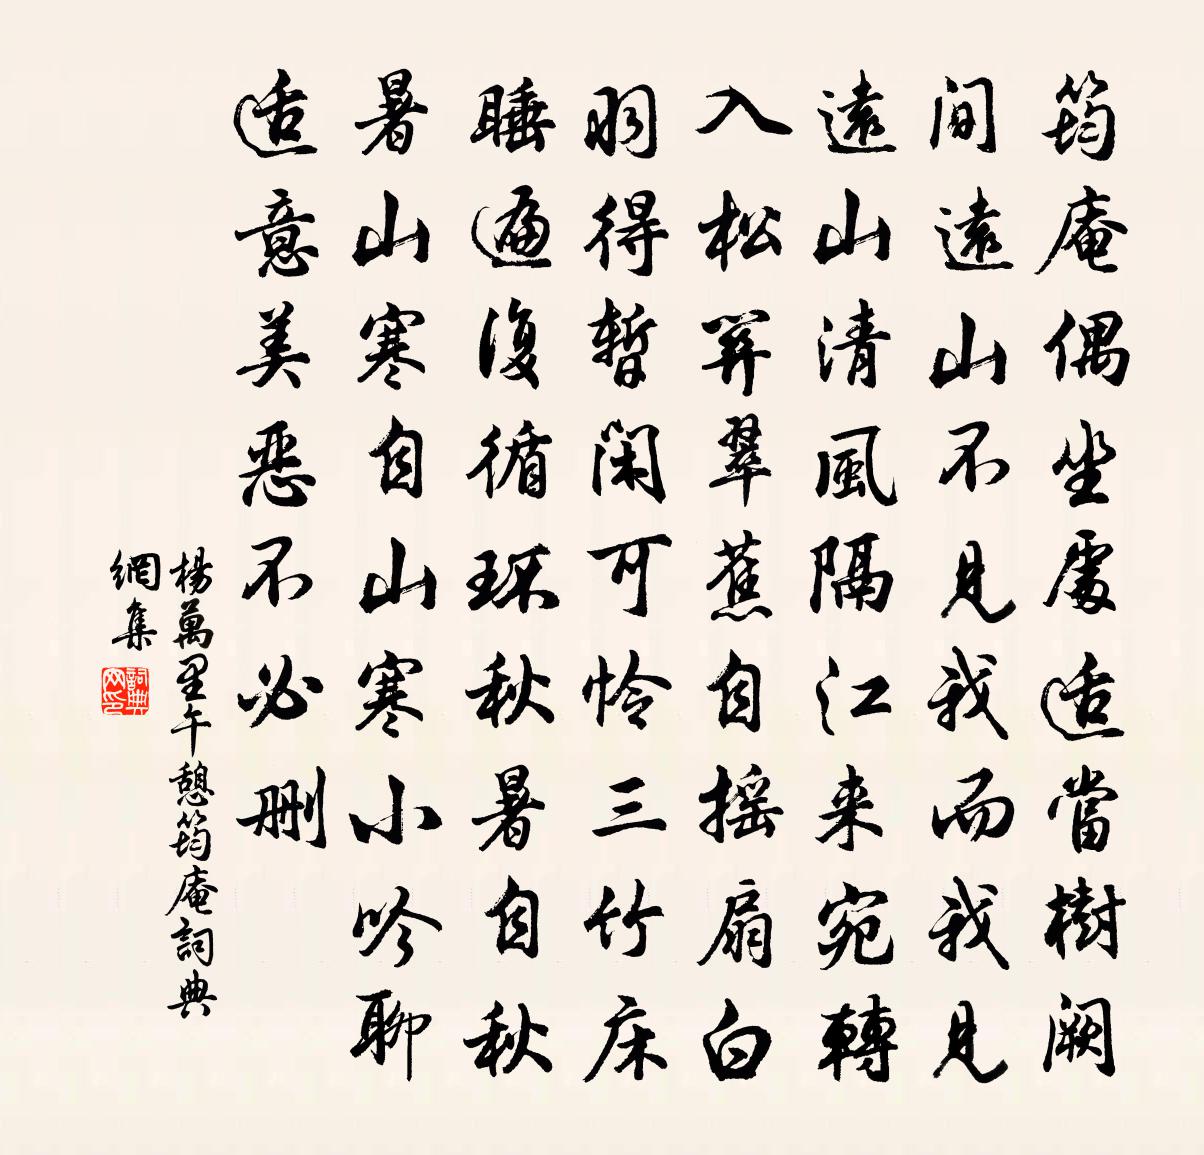 筠庵偶坐處适當樹闕
間遠山不見我而我見
遠山清風隔江来宛轉
入松關翠蕉自摇扇白
羽得暫閑可怜三竹床
睡遍復循环秋暑自秋
暑山寒自山寒小吟聊
适意美恶不必删
楊萬里午憩筠庵詞典
網集
詞典网印